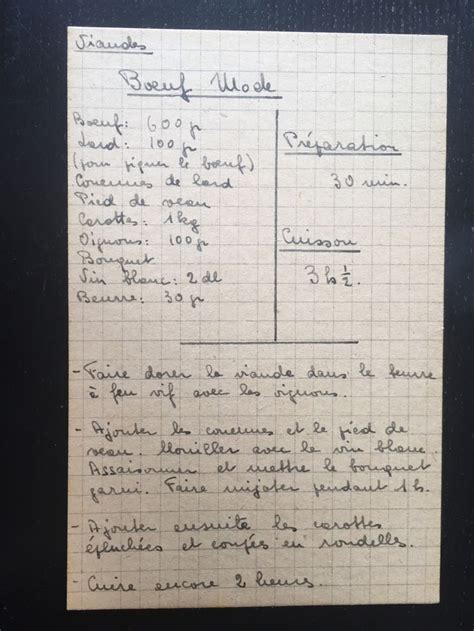 Viandes
Bœuf Mode
Bœuf: 600 gr
Lard: 100 gr
(pour piquer le bœuf)
Couennes de lard
Pied de veau
Carottes: 1 kg
Oignons: 100 gr
Bouquet
Vin blanc: 2 dl
Beurre: 30 gr
Préparation
30 min.
Cuisson
3 h ½.
- Faire dorer la viande dans le beurre
à feu vif avec les oignons.
- Ajouter les couennes et le pied de
veau. Mouiller avec le vin blanc.
Assaisonner et mettre le bouquet
garni. Faire mijoter pendant 1 h.
- Ajouter ensuite les carottes
épluchées et coupées en rondelles.
- Cuire encore 2 heures.